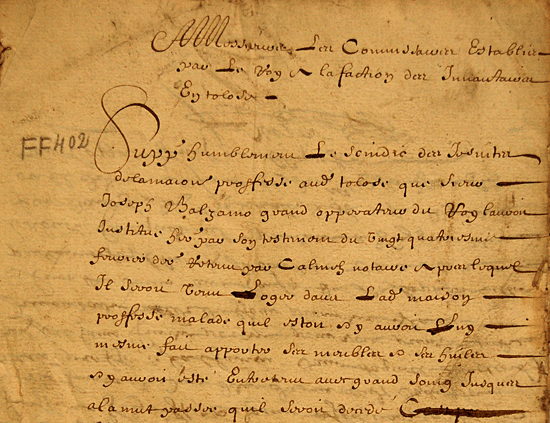 A Messieurs Les Commissaires Establis
par Le Roy A la faction des Inuantaires
En tolose
FF402
Supp humblement Le scindic des Iesuites
de la maison proffesse aud tolose que sieur
Joseph Balzamo grand opperateur du Roy lauroit
Institue her par son testiment du vingt quatriesme
feurier der Retenu par Calmels notaire &
Il seroit venu Loger dans Lad maison
proffesse malade quil estoit & y auroit Luy
mesme fait apporter ses meubles & ses huiles
& y auroit esté Entretenu auec grand soing Jusques
a la nuit passée quil seroit decedé